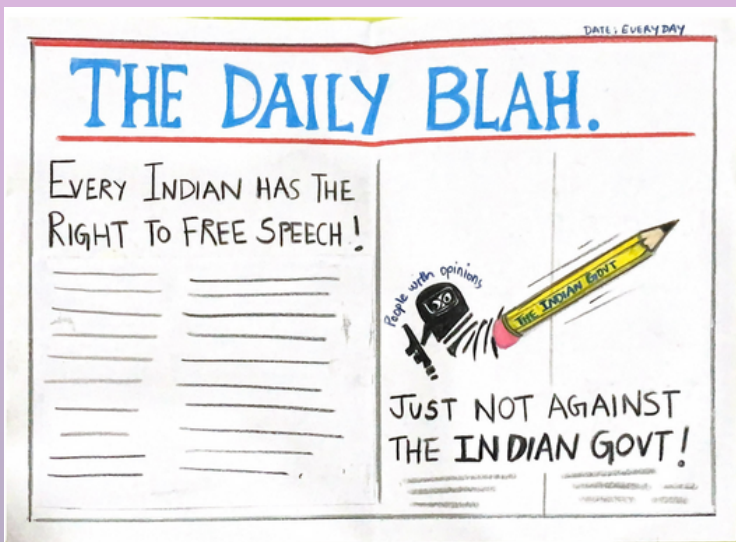 DATE: EVERYDAY
THE DAILY BLAH.
EVERY INDIAN HAS THE
RIGHT TO FREE SPEECH!
People with opinions
THE INDIAN GOVT
JUST NOT AGAINST
THE INDIAN GOVT!